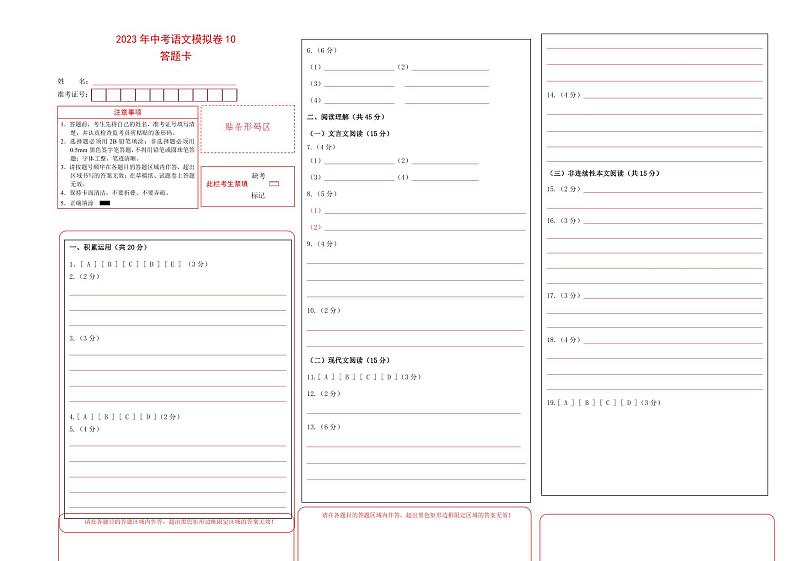 2023 年中考语文模拟卷 10
答题卡
姓 名:
准考证号:
注意事项
1. 答题前,考生先将自己的姓名,准考证号填写清
楚,并认真检查监考员所粘贴的条形码。
2. 选择题必须用 2B 铅笔填涂;非选择题必须用
0.5mm 黑色签字笔答题,不得用铅笔或圆珠笔答
题;字体工整、笔迹清晰。
3. 请按题号顺序在各题目的答题区域内作答,超出
区域书写的答案无效;在草稿纸、试题卷上答题
无效。
4. 保持卡面清洁,不要折叠、不要弄破。
5. 正确填涂
贴条形码区
此栏考生禁填
缺考
标记
一、积累运用(共 20 分)
1.[ A ] [ B ] [ C ] [ D ] [ E ] (3 分)
2.(2 分)
3.(3 分)
4.[ A ] [ B ] [ C ] [ D ](2 分)
5.(4 分)
请在各题目的答题区域内作答,超出黑色矩形边框限定区域的答案无效!
6.(6 分)
(1) (2)
(3)
(4)
二、阅读理解(共 45 分)
(一)文言文阅读(15 分)
7.(4 分)
(1) (2)
(3) (4)
8.(5 分)
(1)
(2)
9.(4 分)
10.(2 分)
(二)现代文阅读(15 分)
11.[ A ] [ B ] [ C ] [ D ](3 分)
12.(2 分)
13.(6 分)
请在各题目的答题区域内作答,超出黑色矩形边框限定区域的答案无效!
14.(4 分)
(三)非连续性本文阅读(共 15 分)
15.(2 分)
16.(3 分)
17.(3 分)
18.(4 分)
19.[ A ] [ B ] [ C ] [ D ](3 分)